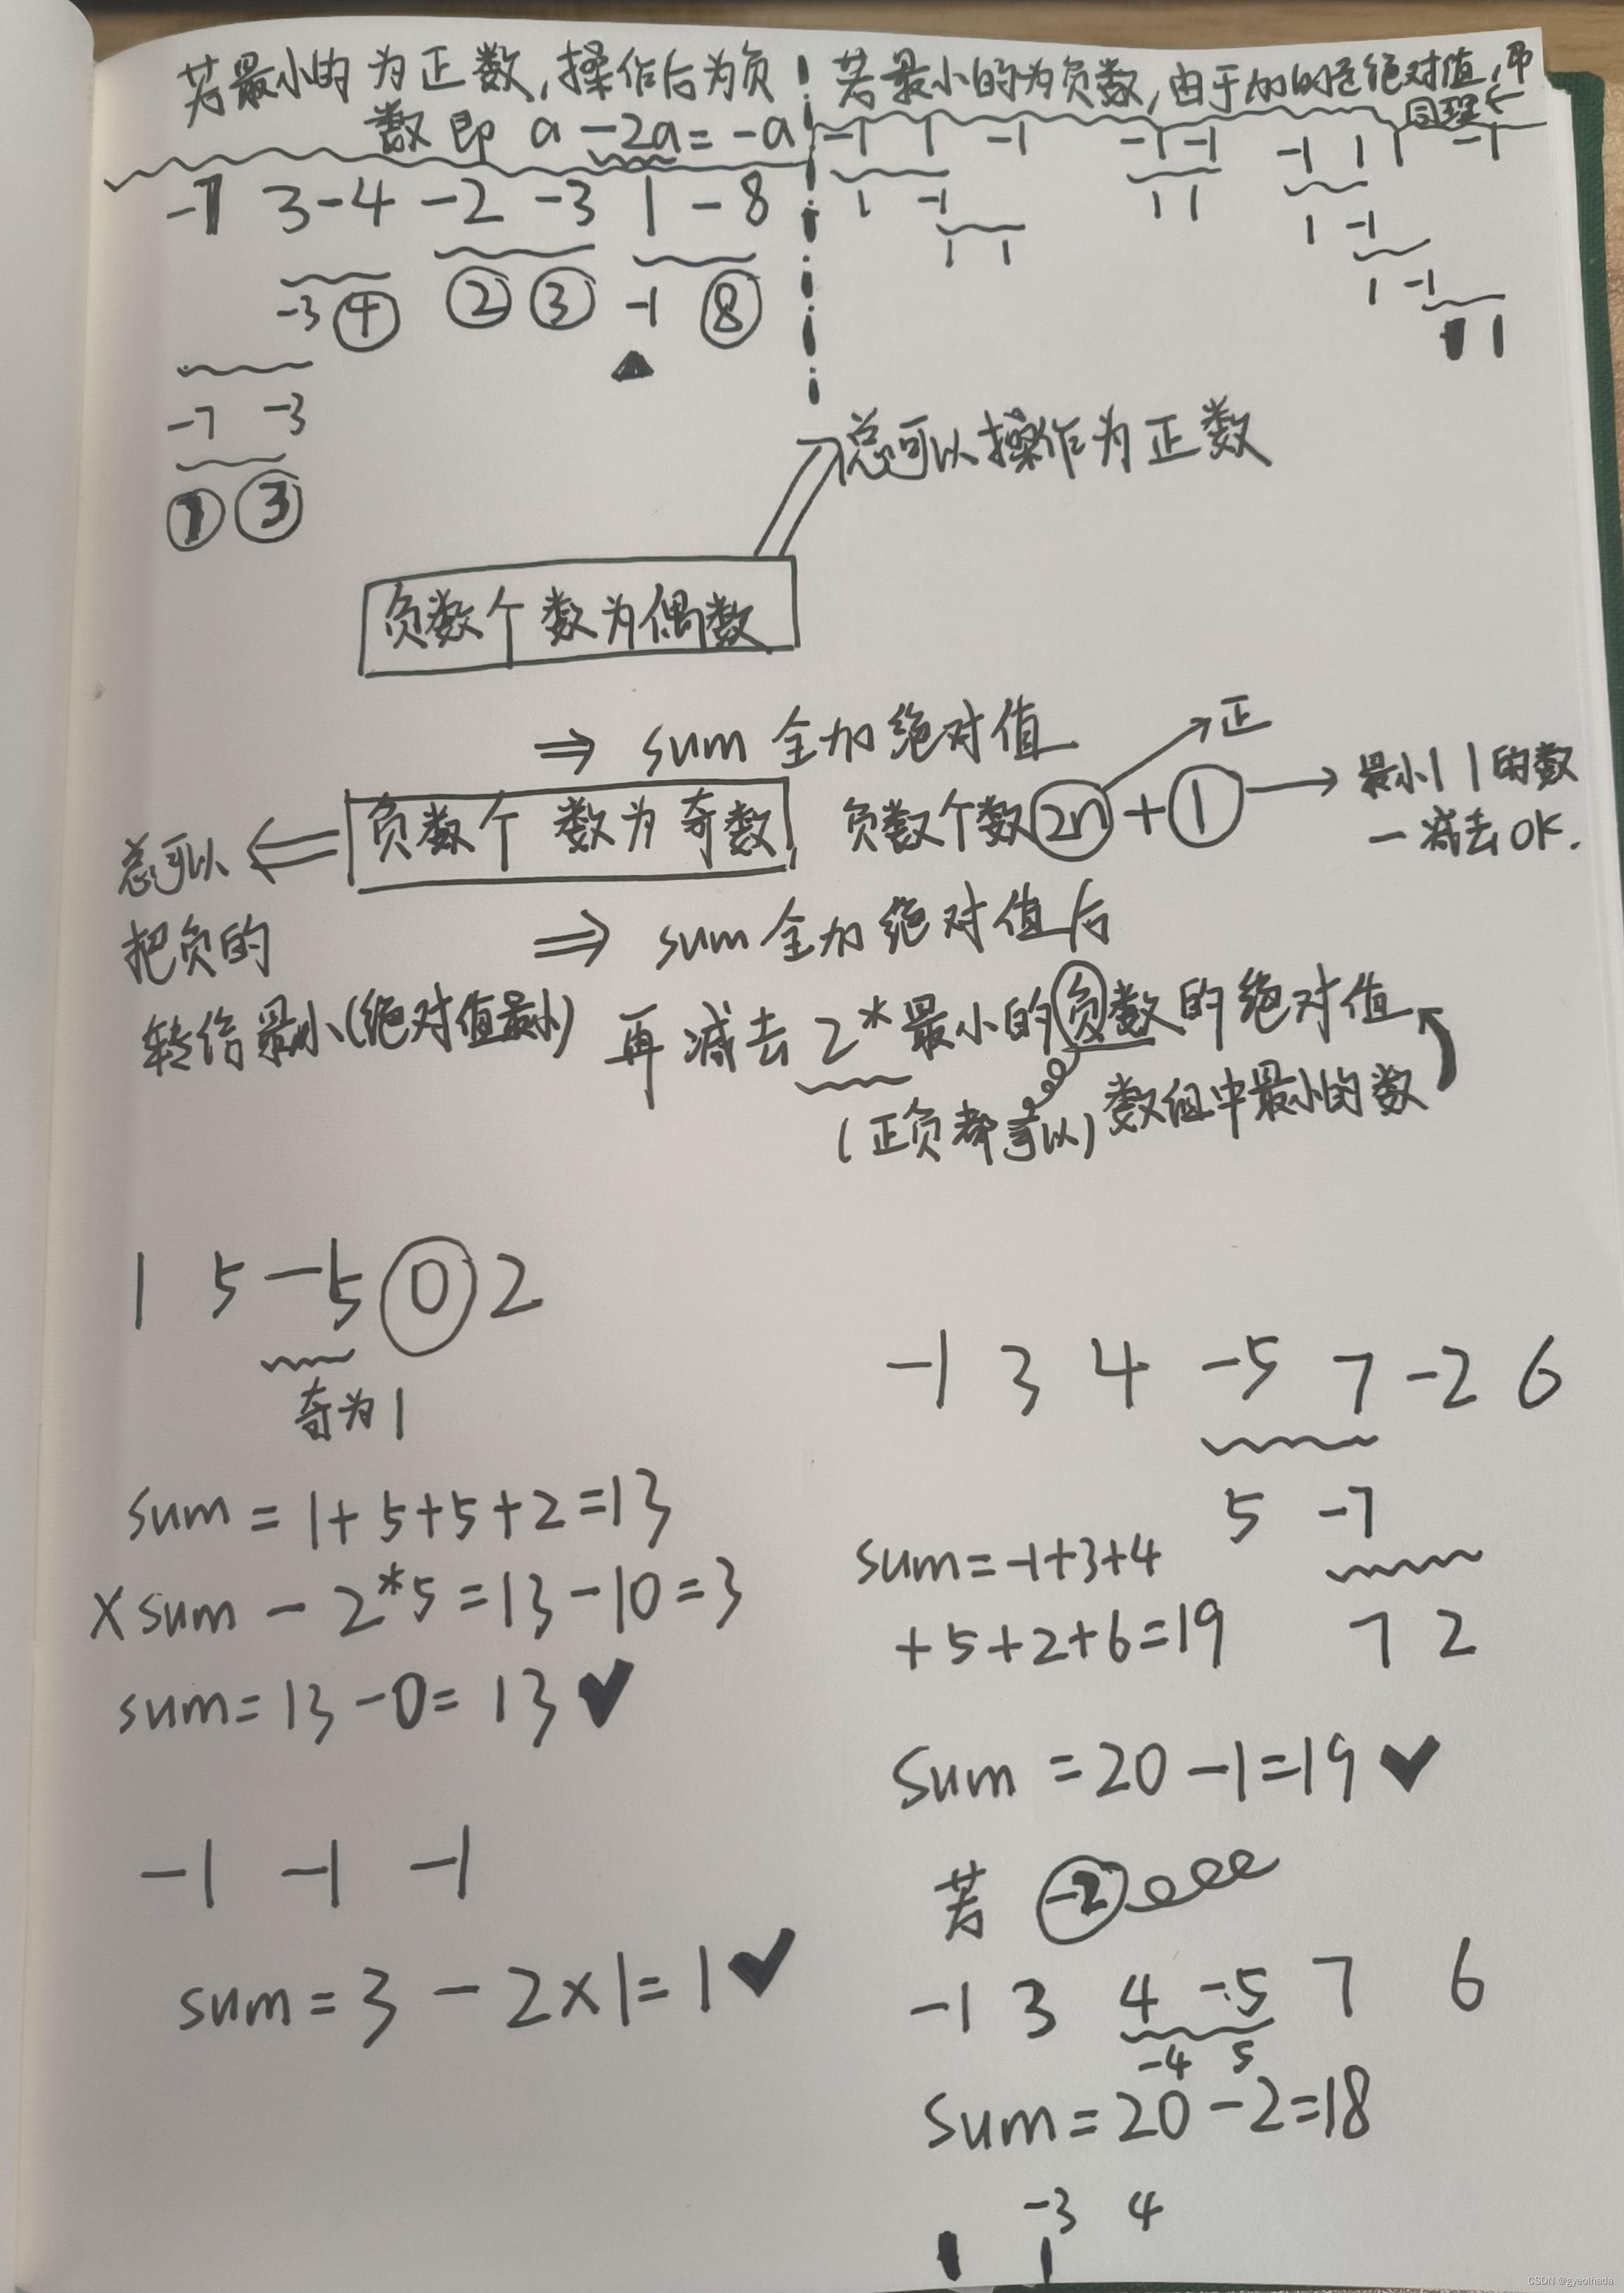 若最小的为正数,操作后为负
数 即 a -2a = -a
若最小的为负数,由于加的是绝对值,
同理
-1 1 -1 -1 -1 -1 1 1 -1
1 -1 1 1 1 -1
1 1 1 -1
1 1
3 -4 -2 -3 1 -8
-3 ④ ② ③ -1 ⑧
-7 -3
③
总可以操作为正数
负数个数为偶数
⇒ sum 全加绝对值
负数个数为奇数, 负数个数 2n + 1
正
最小| |的数
一减去OK.
总可以
把负的
转给最小(绝对值最小)
⇒ sum 全加绝对值后
再减去 2*最小的负数的绝对值
(正负都可以) 数组中最小的数
1 5 -5 0 2
奇为1
sum = 1+5+5+2=13
× sum - 2*5 = 13-10=3
sum = 13-0= 13 ✔
-1 -1 -1
sum = 3 - 2×1=1 ✔
-1 3 4 -5 7 -2 6
5 -7
7 2
sum=-1+3+4
+5+2+6=19
Sum = 20-1=19 ✔
若 -2
-1 3 4 -5 7 6
-4 5
Sum = 20-2=18
-3 4
1
CSDN @gyeolhada